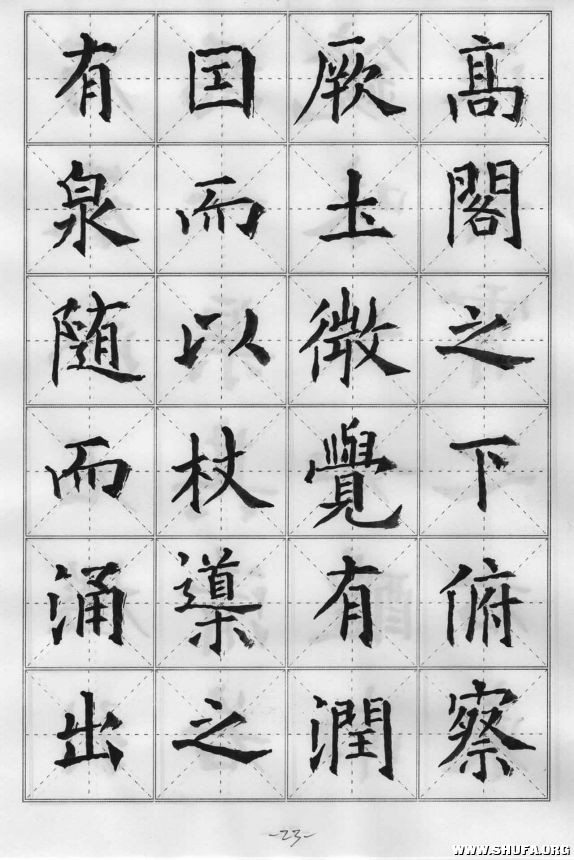 髙閣之下俯察
厥圡微覺有潤
因而以杖導之
有泉随而涌出
-23-
WWW.SHUFA.ORG